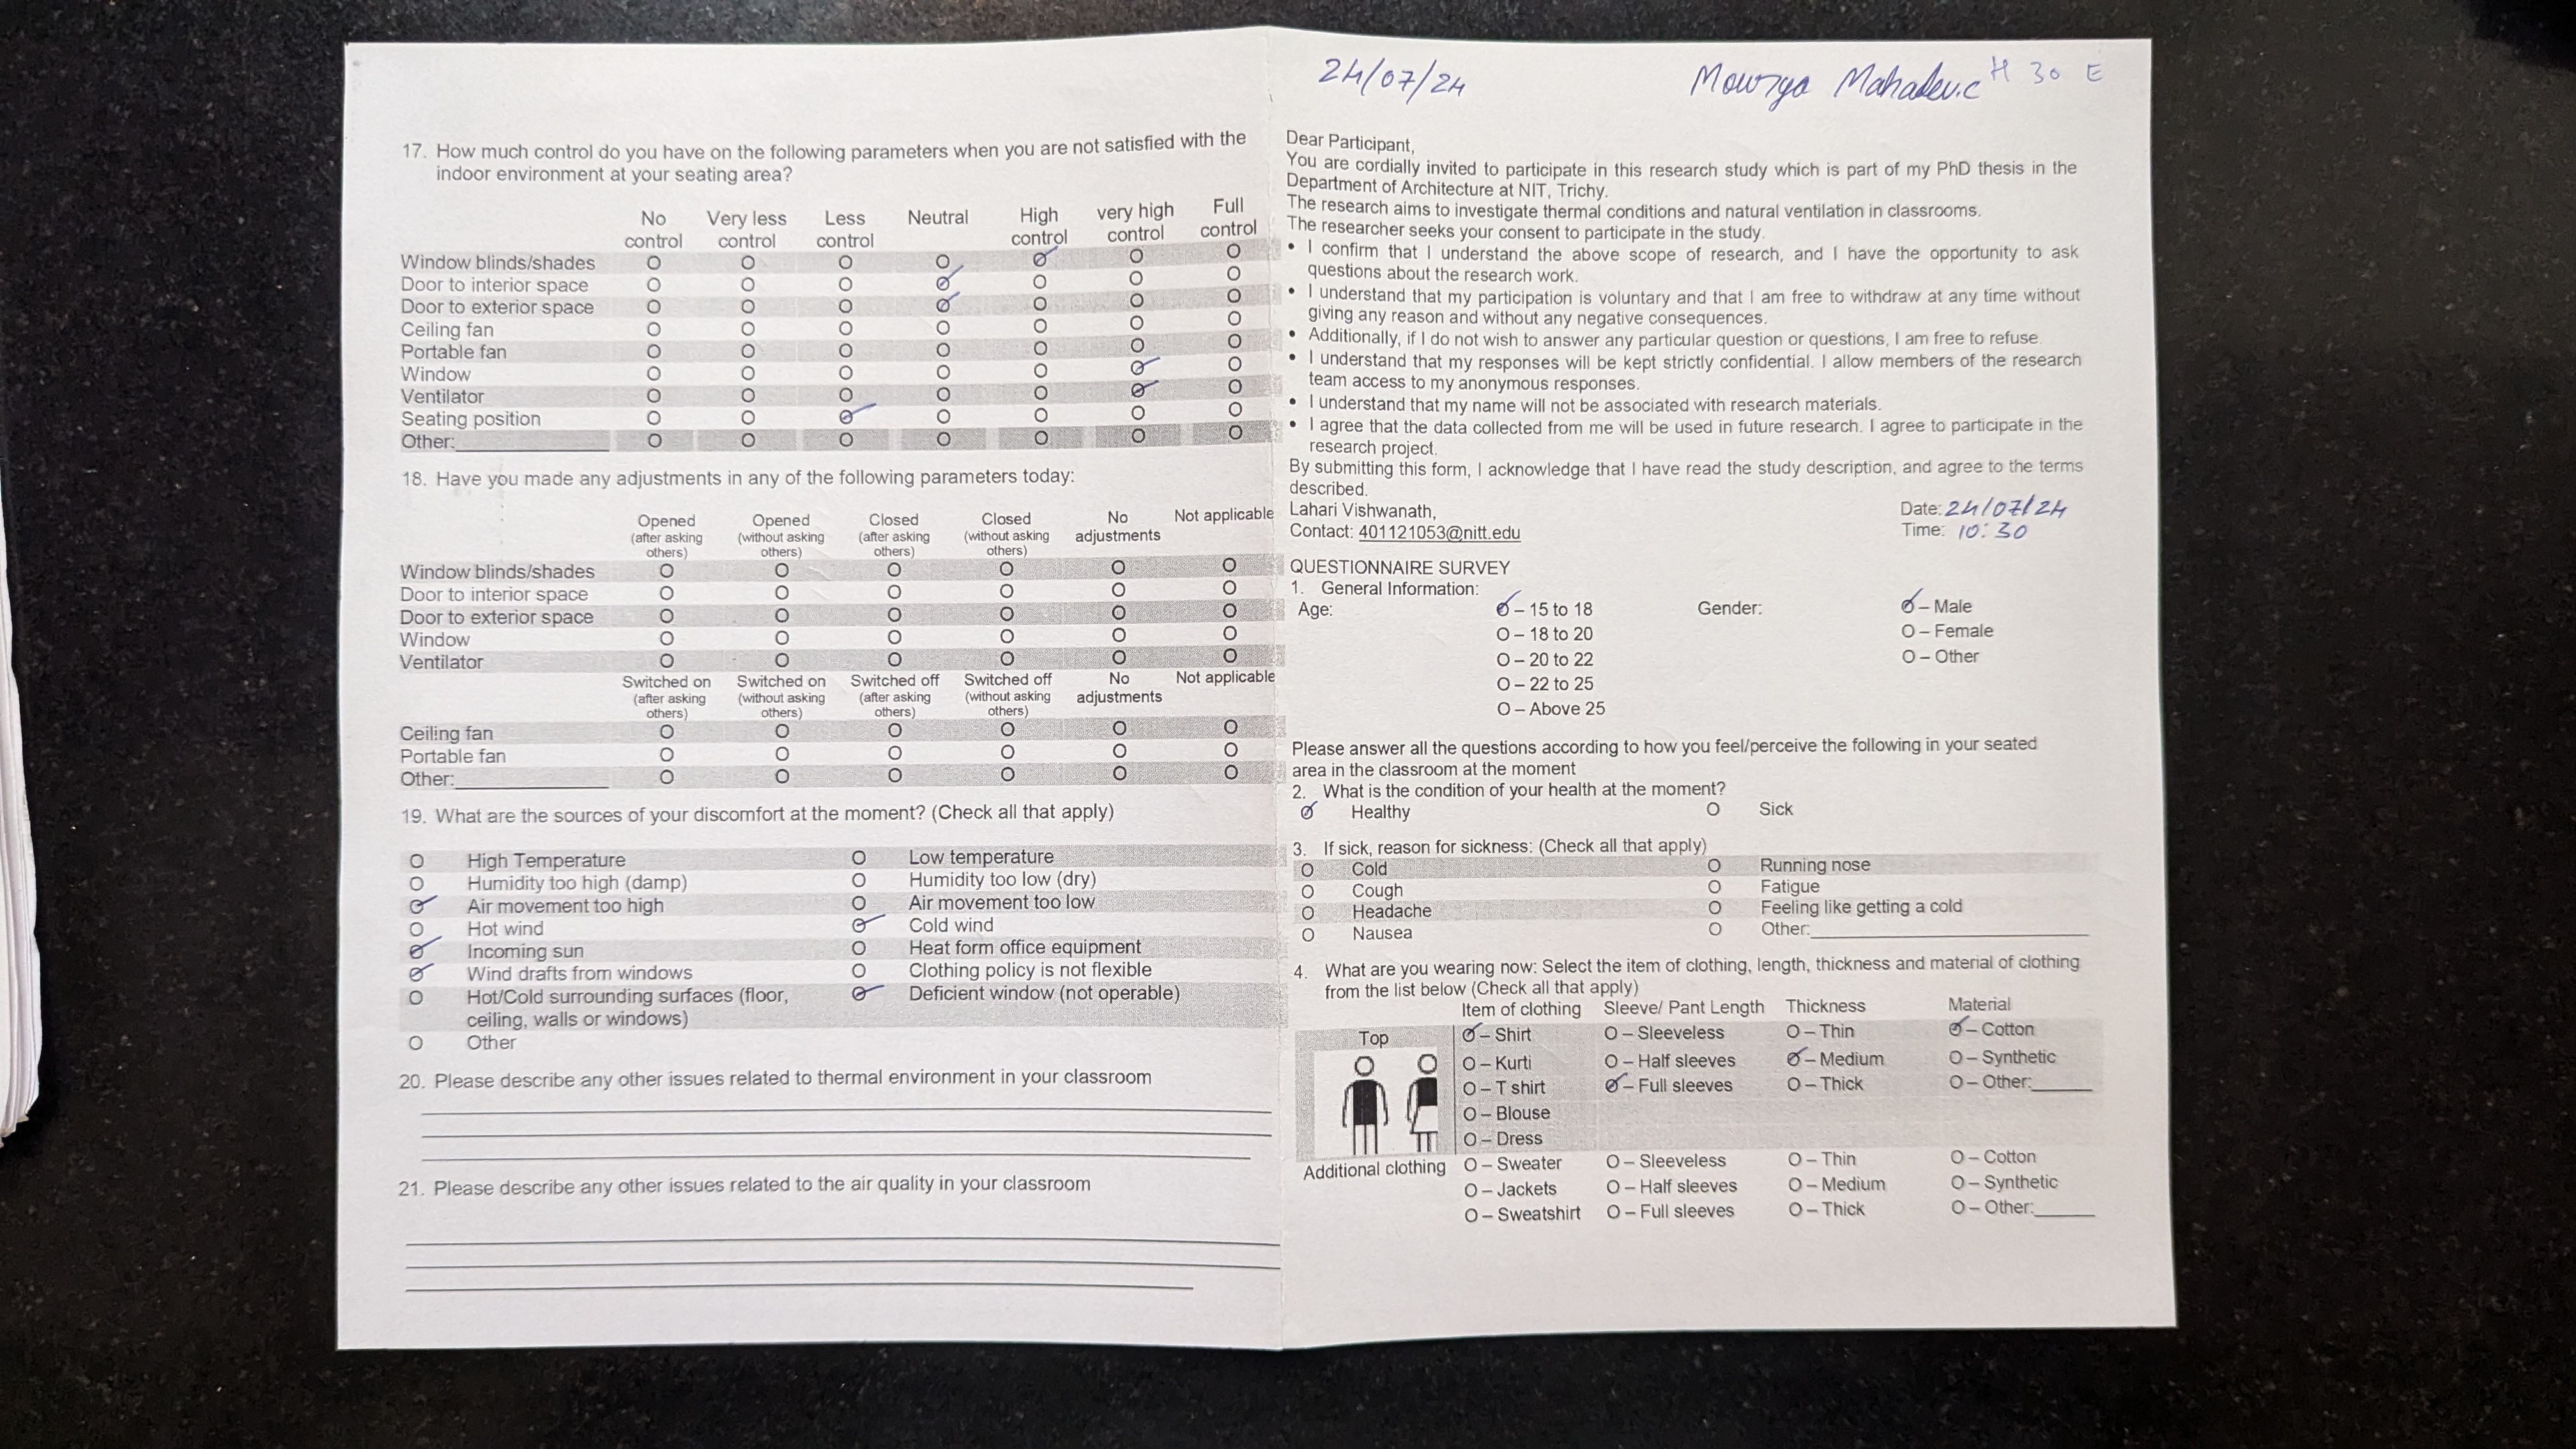 17. How much control do you have on the following parameters when you are not satisfied with the
indoor environment at your seating area?
No control Very less control Less control Neutral High control very high control Full control
Window blinds/shades O O O O O O O
Door to interior space O O O O O O O
Door to exterior space O O O O O O O
Ceiling fan O O O O O O O
Portable fan O O O O O O O
Window O O O O O O O
Ventilator O O O O O O O
Seating position O O O O O O O
Other: O O O O O O O
18. Have you made any adjustments in any of the following parameters today:
Opened (after asking others) Opened (without asking others) Closed (after asking others) Closed (without asking others) No adjustments Not applicable
Window blinds/shades O O O O O O
Door to interior space O O O O O O
Door to exterior space O O O O O O
Window O O O O O O
Ventilator O O O O O O
Switched on (after asking others) Switched on (without asking others) Switched off (after asking others) Switched off (without asking others) No adjustments Not applicable
Ceiling fan O O O O O O
Portable fan O O O O O O
Other: O O O O O O
19. What are the sources of your discomfort at the moment? (Check all that apply)
O High Temperature O Low temperature
O Humidity too high (damp) O Humidity too low (dry)
O Air movement too high O Air movement too low
O Hot wind O Cold wind
O Incoming sun O Heat form office equipment
O Wind drafts from windows O Clothing policy is not flexible
O Hot/Cold surrounding surfaces (floor, O Deficient window (not operable)
ceiling, walls or windows)
O Other
20. Please describe any other issues related to thermal environment in your classroom
21. Please describe any other issues related to the air quality in your classroom
24/07/24 Mowrya Mahadev.c H 30 E
Dear Participant,
You are cordially invited to participate in this research study which is part of my PhD thesis in the
Department of Architecture at NIT, Trichy.
The research aims to investigate thermal conditions and natural ventilation in classrooms.
The researcher seeks your consent to participate in the study.
• I confirm that I understand the above scope of research, and I have the opportunity to ask
questions about the research work.
• I understand that my participation is voluntary and that I am free to withdraw at any time without
giving any reason and without any negative consequences.
• Additionally, if I do not wish to answer any particular question or questions, I am free to refuse.
• I understand that my responses will be kept strictly confidential. I allow members of the research
team access to my anonymous responses.
• I understand that my name will not be associated with research materials.
• I agree that the data collected from me will be used in future research. I agree to participate in the
research project.
By submitting this form, I acknowledge that I have read the study description, and agree to the terms
described.
Lahari Vishwanath, Date: 24/07/24
Contact: 401121053@nitt.edu Time: 10:30
QUESTIONNAIRE SURVEY
1. General Information:
Age: O – 15 to 18 Gender: O – Male
O – 18 to 20 O – Female
O – 20 to 22 O – Other
O – 22 to 25
O – Above 25
Please answer all the questions according to how you feel/perceive the following in your seated
area in the classroom at the moment
2. What is the condition of your health at the moment?
O Healthy O Sick
3. If sick, reason for sickness: (Check all that apply)
O Cold O Running nose
O Cough O Fatigue
O Headache O Feeling like getting a cold
O Nausea O Other:
4. What are you wearing now: Select the item of clothing, length, thickness and material of clothing
from the list below (Check all that apply)
Item of clothing Sleeve/ Pant Length Thickness Material
Top O – Shirt O – Sleeveless O – Thin O – Cotton
O – Kurti O – Half sleeves O – Medium O – Synthetic
O – T shirt O – Full sleeves O – Thick O – Other:
O – Blouse
O – Dress
Additional clothing O – Sweater O – Sleeveless O – Thin O – Cotton
O – Jackets O – Half sleeves O – Medium O – Synthetic
O – Sweatshirt O – Full sleeves O – Thick O – Other: